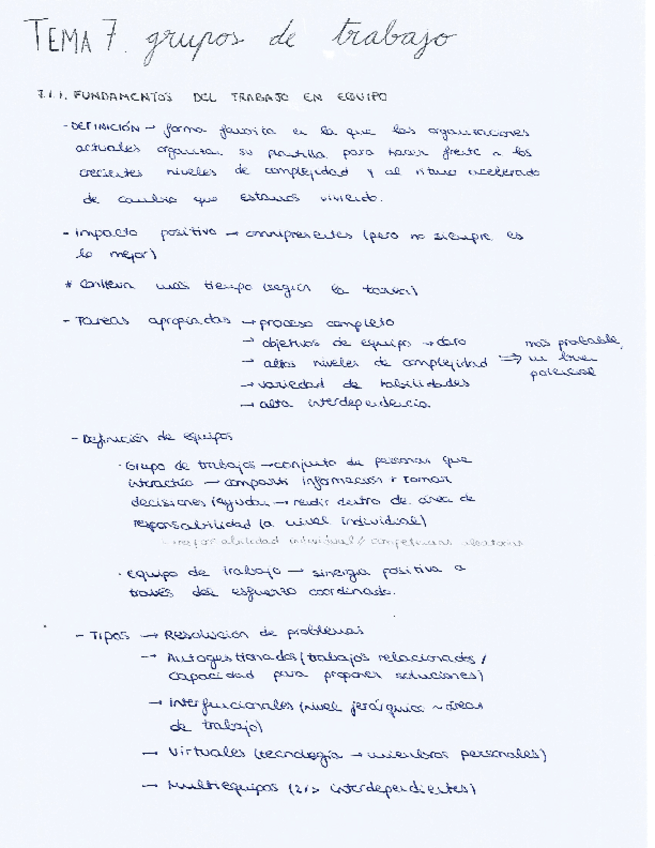 TEMA 7. grupos de trabajo
7.1.1. FUNDAMENTOS DEL TRABAJO EN EQUIPO
- DEFINICIÓN → forma favorita en la que las organizaciones
actuales organizan su plantilla para hacer frente a los
crecientes niveles de complejidad y al ritmo acelerado
de cambio que estamos viviendo.
- impacto positivo → omnipresentes (pero no siempre es
lo mejor)
* Conlleva más tiempo (según la tarea)
- Tareas apropiadas → proceso completo
→ objetivos de equipo → claro
→ altos niveles de complejidad ⇒ más probable, un buen potencial
→ variedad de habilidades
→ alta interdependencia.
- Definición de equipos
· Grupo de trabajos → conjunto de personas que
interactúa → compartir información + tomar
decisiones (ayudar → rendir dentro de área de
responsabilidad (a nivel individual)
individual / competencias
· equipo de trabajo → sinergia positiva a
través del esfuerzo coordinado.
- Tipos → Resolución de problemas
→ Autogestionados (trabajos relacionados /
capacidad para proponer soluciones)
→ interfuncionales (nivel jerárquico ~ áreas
de trabajo)
→ Virtuales (tecnología → miembros personales)
→ Multiequipos (2/> interdependientes)